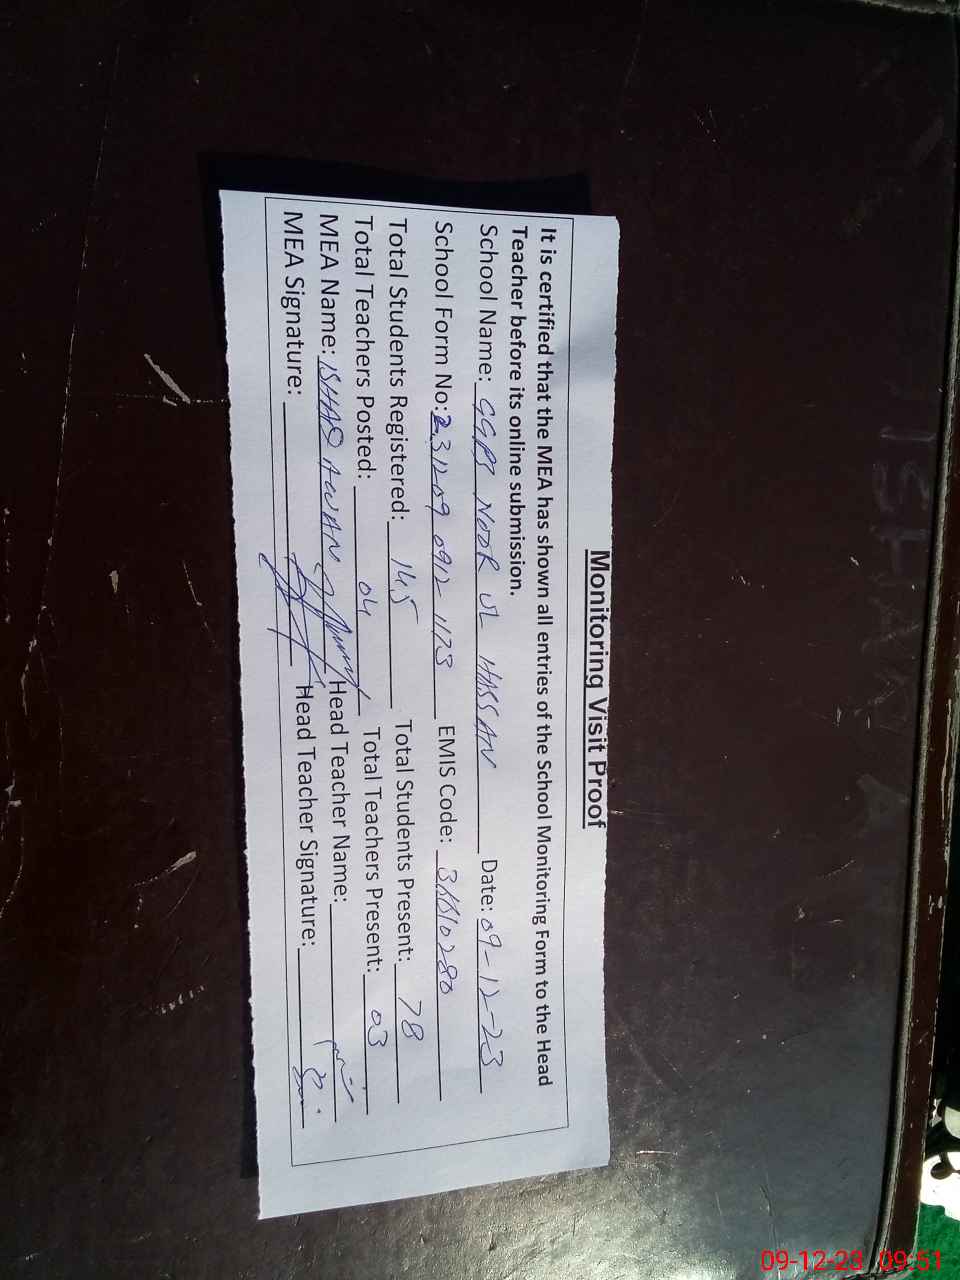 Monitoring Visit Proof
It is certified that the MEA has shown all entries of the School Monitoring Form to the Head
Teacher before its online submission.
School Name: GGPS NOOR UL HASSAN Date: 09-12-23
School Form No: 231209 0912 1123 EMIS Code:
Total Students Registered: 145 Total Students Present: 78
Total Teachers Posted: 04 Total Teachers Present: 03
MEA Name: ISHAQ AWAN Head Teacher Name:
MEA Signature: Head Teacher Signature:
09-12-23 09:51